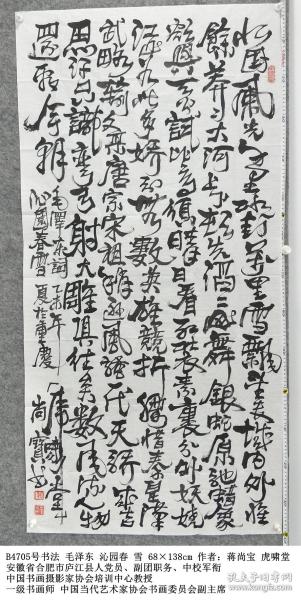 北国風光千里冰封萬里雪飘望長城内外惟
餘莽莽大河上下頓失滔滔山舞銀蛇原馳蠟象
欲與天公試比高須晴日看红装素裹分外妖娆
江山如此多娇引無數英雄競折腰惜秦皇漢
武略輸文采唐宗宋祖稍遜風騷一代天骄成吉
思汗只識彎弓射大雕俱往矣數風流人物
還看今朝
毛澤東詞
沁園春雪
夏於重慶
尚寶
B4705号书法 毛泽东 沁园春 雪 68×138cm 作者：蒋尚宝 虎啸堂
安徽省合肥市庐江县人党员、副团职务、中校军衔
中国书画摄影家协会培训中心教授
一级书画师 中国当代艺术家协会书画委员会副主席